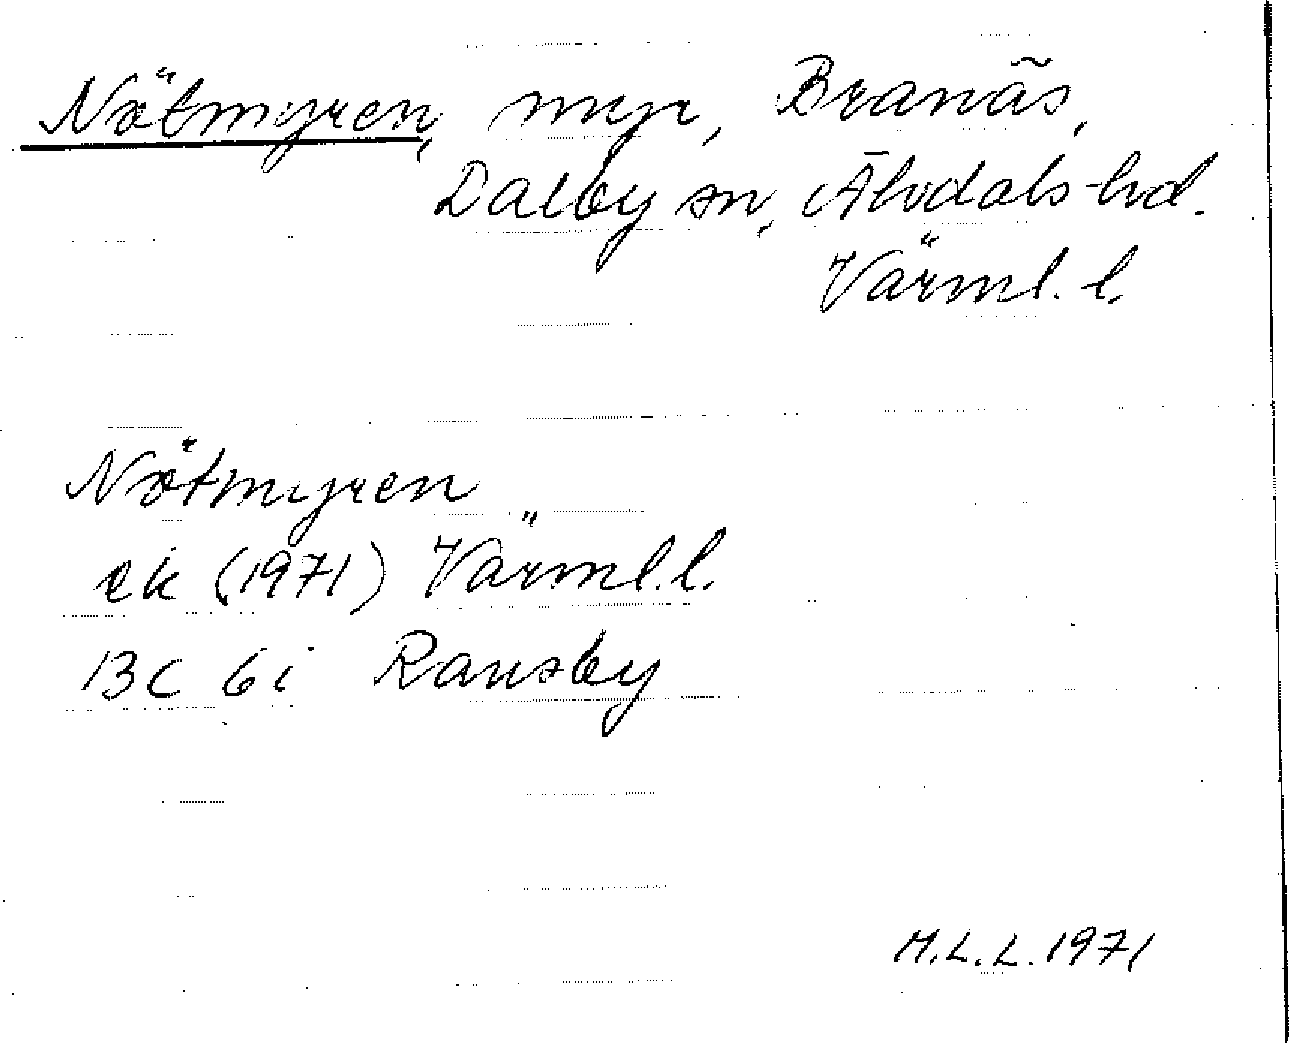 Nötmyren, myr, Branäs,
Dalby sn, Älvdals hd.
Värml. l.
Nötmyren
ek (1971) Värml. l.
13C 6i Ransby
M.L.L. 1971